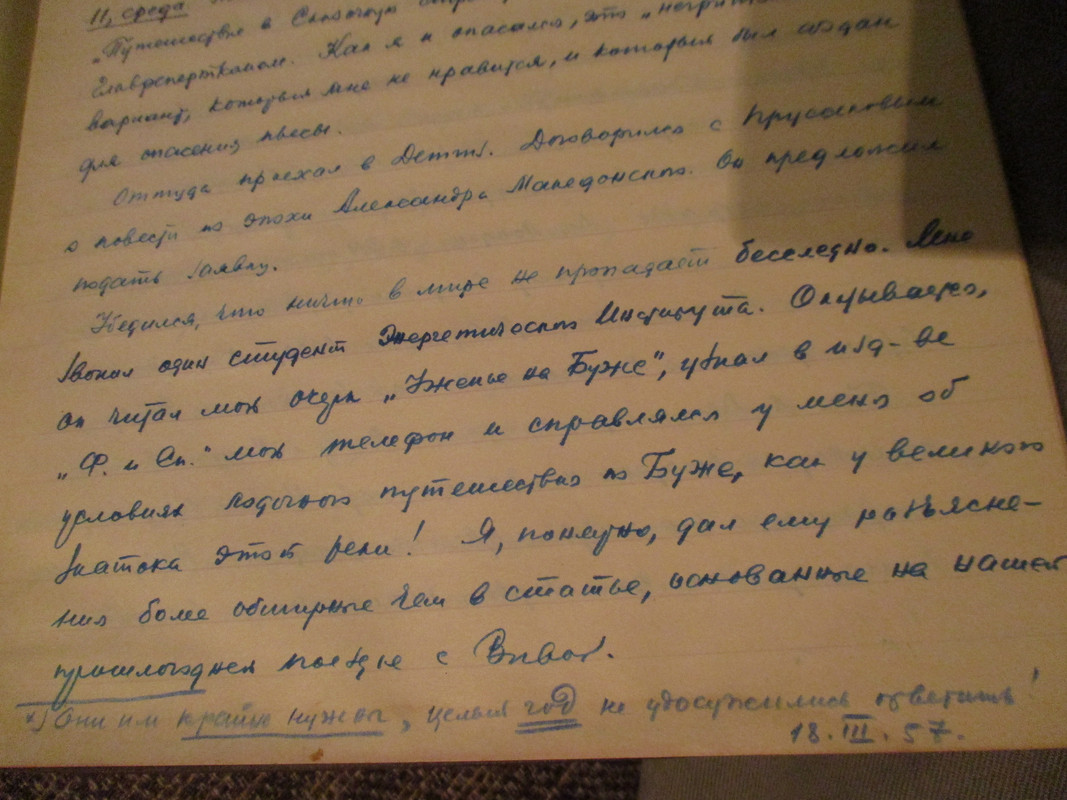 11, среда
„Путешествие в Сказочную
Главреперткомом. Как я и опасался, это
вариант, который мне не нравится, и который был создан
для спасения пьесы.
Оттуда проехал в Детгиз. Договорился с Прусаковым
о повести из эпохи Александра Македонского. Он предложил
подать заявку.
Убедился, что ничто в мире не пропадает бесследно. Мне
звонил один студент Энергетического Института. Оказывается,
он читал мой очерк „Уженье на Буже", узнал в изд-ве
„Ф. и Сп." мой телефон и справлялся у меня об
условиях лодочного путешествия по Буже, как у великого
знатока этой реки! Я, понятно, дал ему разъясне-
ния более обширные чем в статье, основанные на нашей
прошлогодней поездке с Вивой.
х) Они им крайне нужны, целый год не удосужились ответить!
18.III.57.